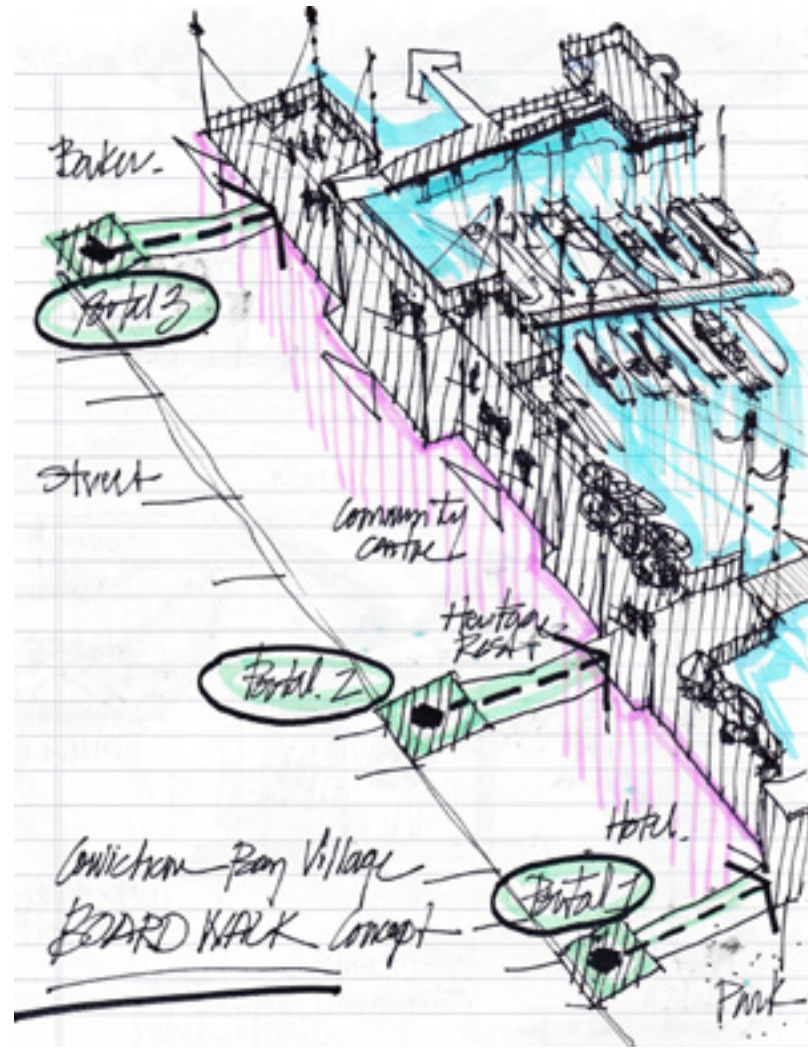 Baker
Portal 3
Street
Community
Centre
Heritage
Rest
Portal. 2
Hotel.
Cowichan Bay Village
Portal 1
BOARD WALK Concept
Park